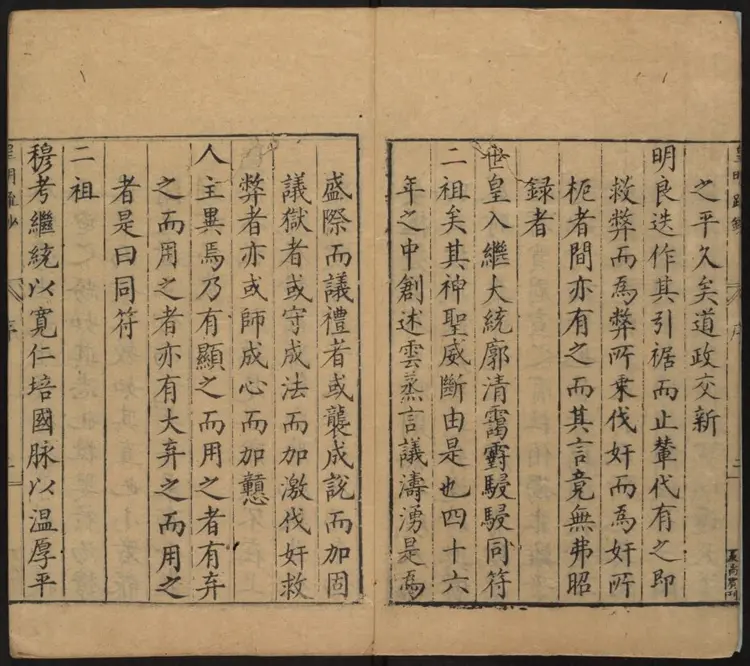 之平久矣道政交新
明良迭作其引裾而止輦代有之即
救弊而爲弊所乗伐奸而爲奸所
枙者間亦有之而其言竟無弗昭
録者
世皇入繼大統廓清駸駸同符
二祖矣其神聖威斷由是也四十六
年之中創述雲蒸言議濤湧是爲
盛際而議禮者或襲成說而加固
議獄者或守成法而加激伐奸救
弊者亦或師成心而加戇
人主異焉乃有顯之而用之者有弃
之而用之者亦有大弃之而用之
者是曰同符
二祖
穆考繼統以寬仁培國脉以温厚平